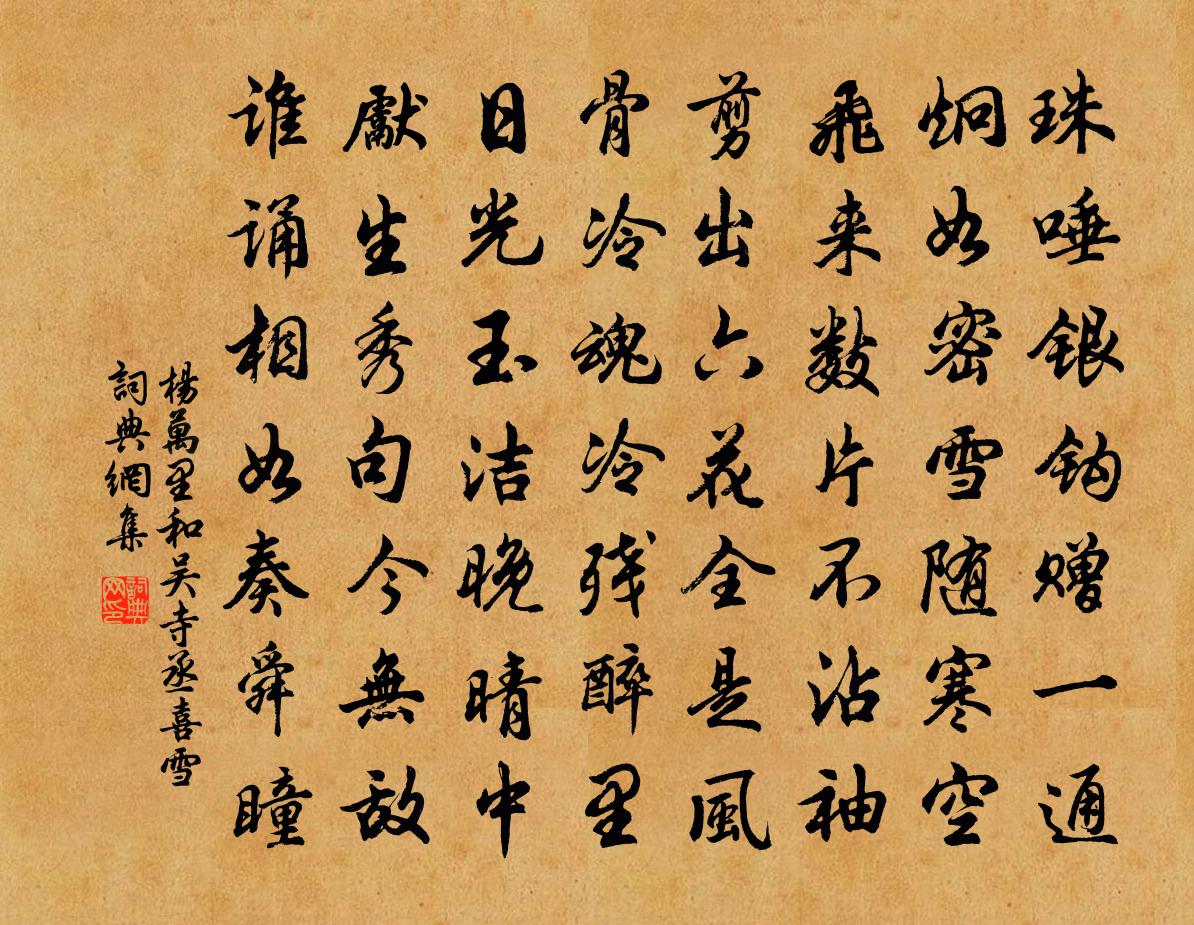 珠唾银钩赠一通
炯如密雪随寒空
飛来数片不沾袖
剪出六花全是風
骨冷魂冷残醉里
日光玉洁晚晴中
獻生秀句今無敌
谁诵相如奏舜瞳
楊萬里和吴寺丞喜雪
詞典網集